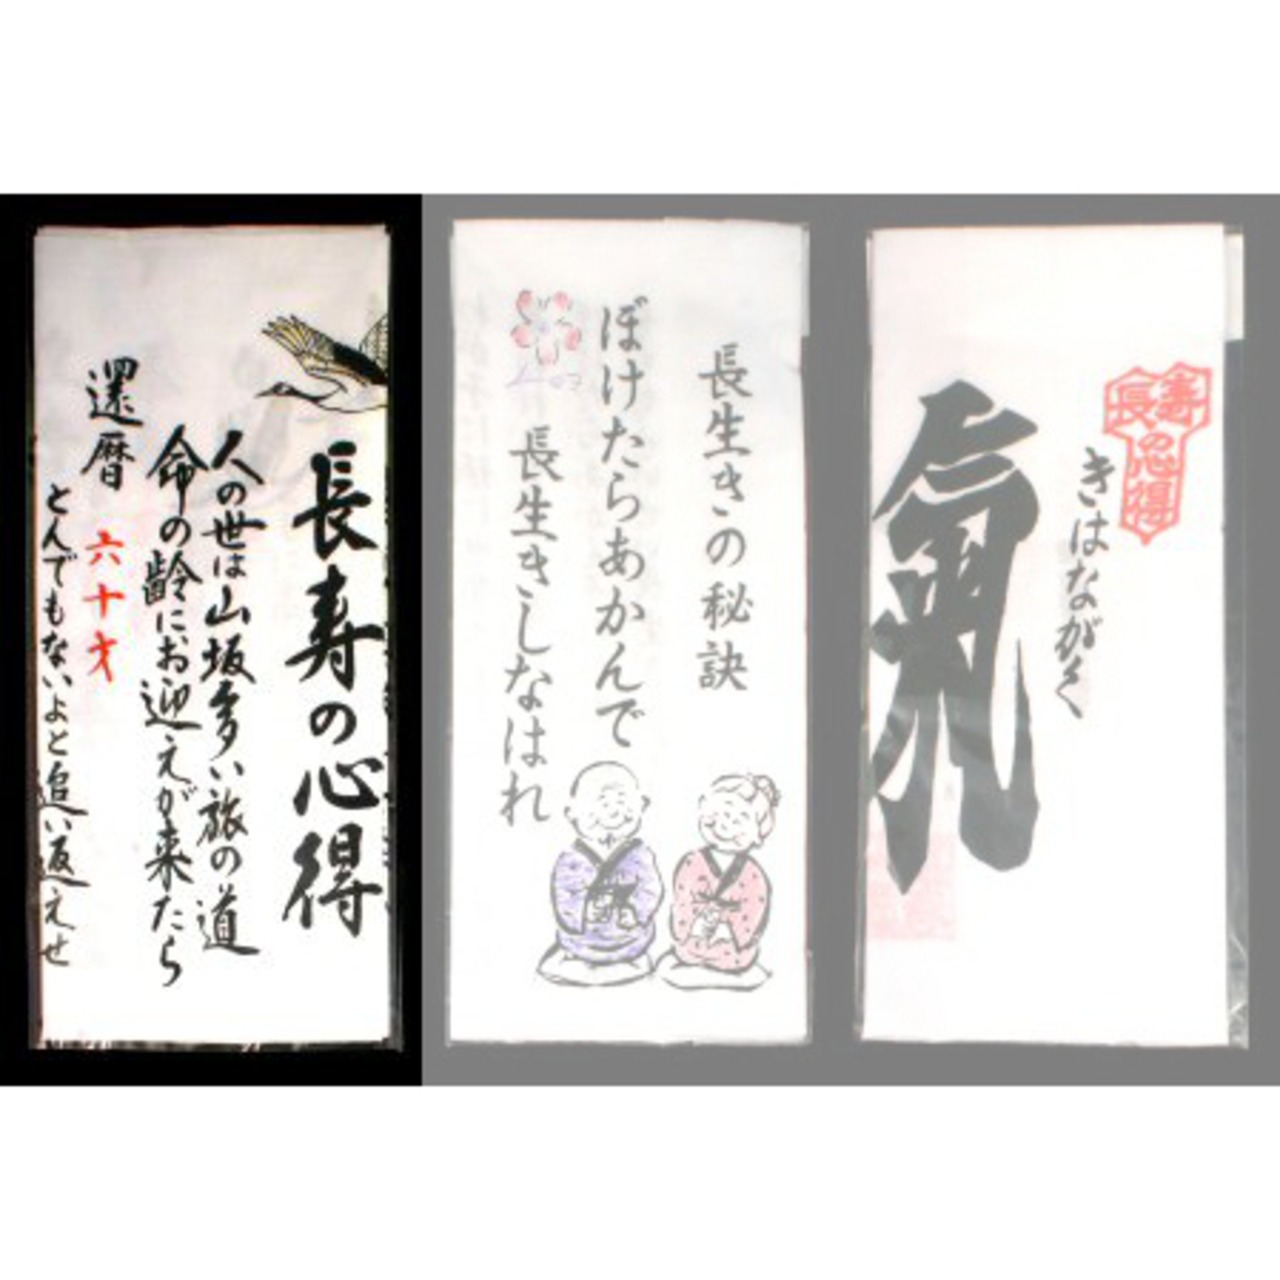 長寿の心得
人の世は山坂多い旅の道
命の齢にお迎えが来たら
還暦 六十才
とんでもないよと追い返えせ
長生きの秘訣
ぼけたらあかんで
長生きしなはれ
長寿の心得
きはながく
氣